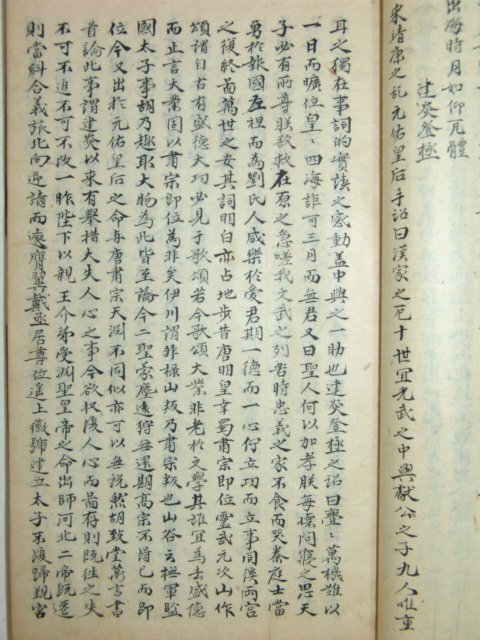 出海時月如仰瓦體
建炎登極
宋靖康之亂元佑皇后手詔曰漢家之厄十世宜光武之中興獻公之子九人唯重
耳之獨在事詞的實讀之感動盖中興之一助也建炎登極之詔曰亹〻萬機難以
一日而曠位皇〻四海詎可三月而無君又曰聖人何以加孝朕每懷問寢之思天
子必有所尊朕欲救在原之急嗟我文武之列若時忠義之家不食而哭秦庭士當
勇於報國左袒而為劉氏人咸樂於愛君期一德而一心佇立功而立事同徯兩宮
之復終啚萬世之安其詞明白亦占地步昔唐明皇幸蜀肅宗即位靈武元次山作
頌謂自古有盛德大功必見于歌頌若今歌頌大業非老於文學其誰宜為去盛德
而止言大業固以肅宗即位為非矣伊川謂非禄山叛乃肅宗叛也山谷云撫軍監
國太子事胡乃趣取大物為此皆至論今二聖蒙塵遠狩無還期高宗不得已而即
位今又出於元佑皇后之命與唐肅宗天淵不同似亦可以無説然胡致堂萬言書
首論此事謂建炎以來有舉措大失人心之事今欲收復人心而啚存則既往之失
不可不追不可不改一昨陛下以親王介弟受淵聖皇帝之命出師河北二帝既遷
則當糾合義旅北向迎請而遽膺翼戴亟居尊位遥上徽號建立太子不復歸覲宮